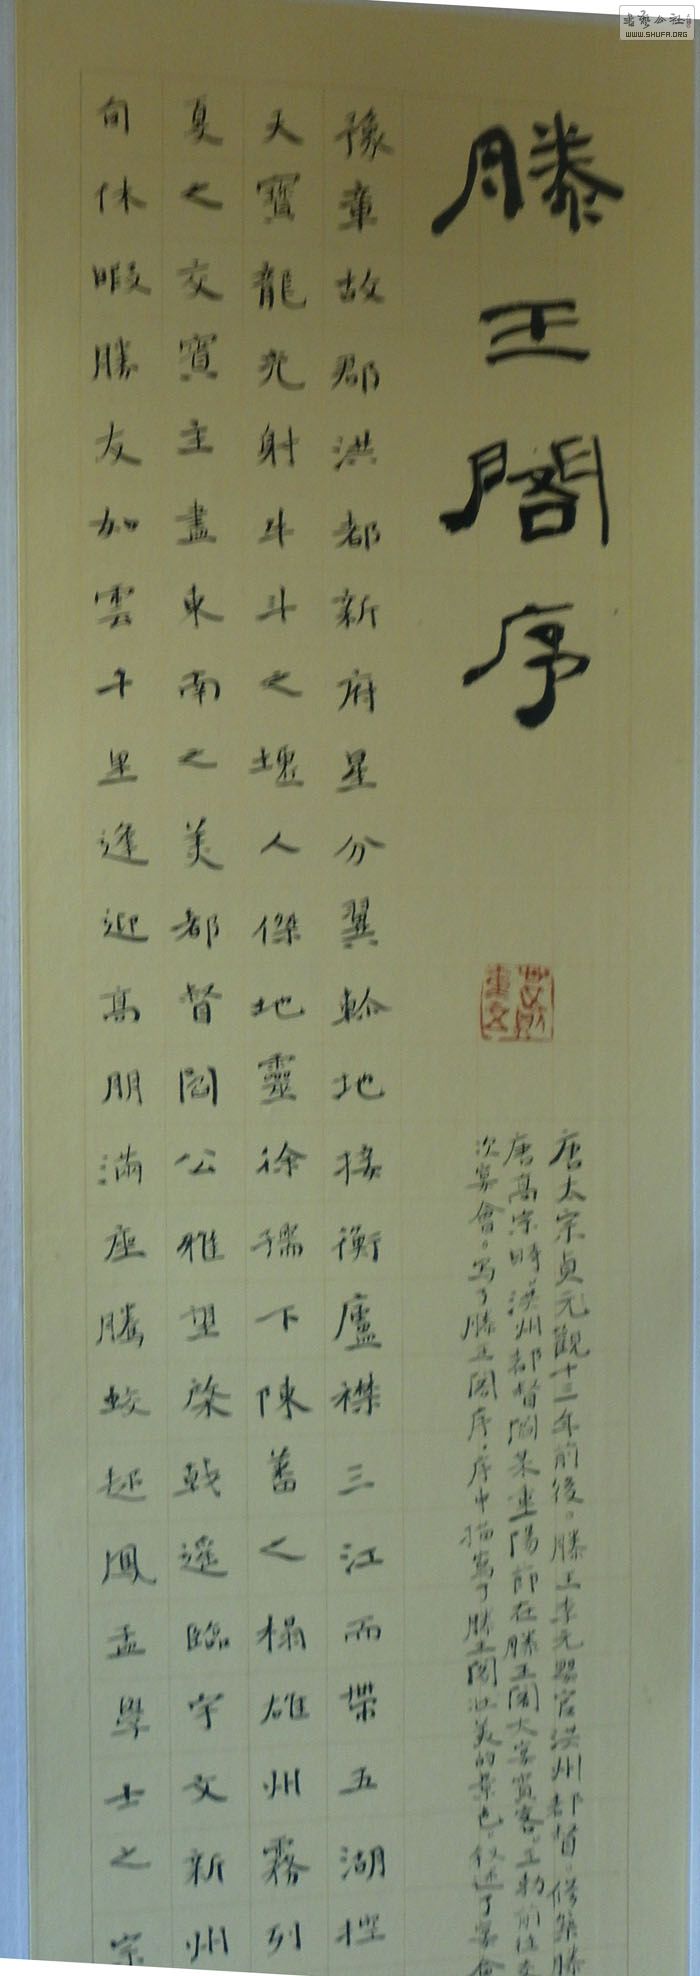 滕王閣序
唐太宗貞元觀十三年前後。滕王李元嬰官洪州都督。修築滕
唐高宗時。洪州都督閻某重陽節在滕王閣大宴賓客。王勃前往
次宴會。写了滕王閣序。序中描寫了滕王閣壯美的景色。叙述了宴會
豫章故郡洪都新府星分翼軫地接衡廬襟三江而帶五湖控
天寶龍光射斗斗之墟人傑地靈徐孺下陳蕃之榻雄州霧列
夏之交賓主盡東南之美都督閻公雅望棨戟遥臨宇文新州
旬休暇勝友如雲千里逢迎高朋滿座騰蛟起鳳孟學士之宗
書藝公社
WWW.SHUFA.ORG